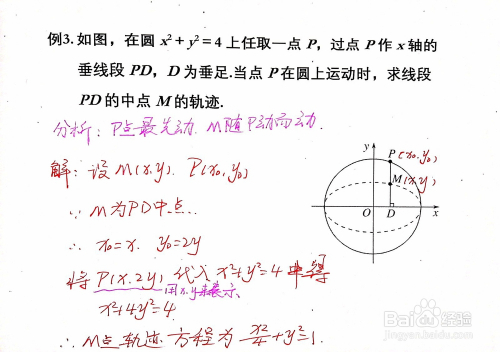 例3.如图，在圆 x²+y²=4 上任取一点 P，过点 P 作 x 轴的
垂线段 PD，D 为垂足.当点 P 在圆上运动时，求线段
PD 的中点 M 的轨迹.
分析：P点最先动. M随P动而动.
解：设 M(x,y). P(x₀,y₀)
∵ M为PD中点.
∴ x₀=x. y₀=2y
将 P(x,2y) 代入 x²+y²=4 中得
用x.y来表示
x²+4y²=4
∴ M点 轨迹 方程为 x²/4+y²=1.
y
P (x₀,y₀)
M(x,y)
O D x
Baidu经验
jingyan.baidu.com